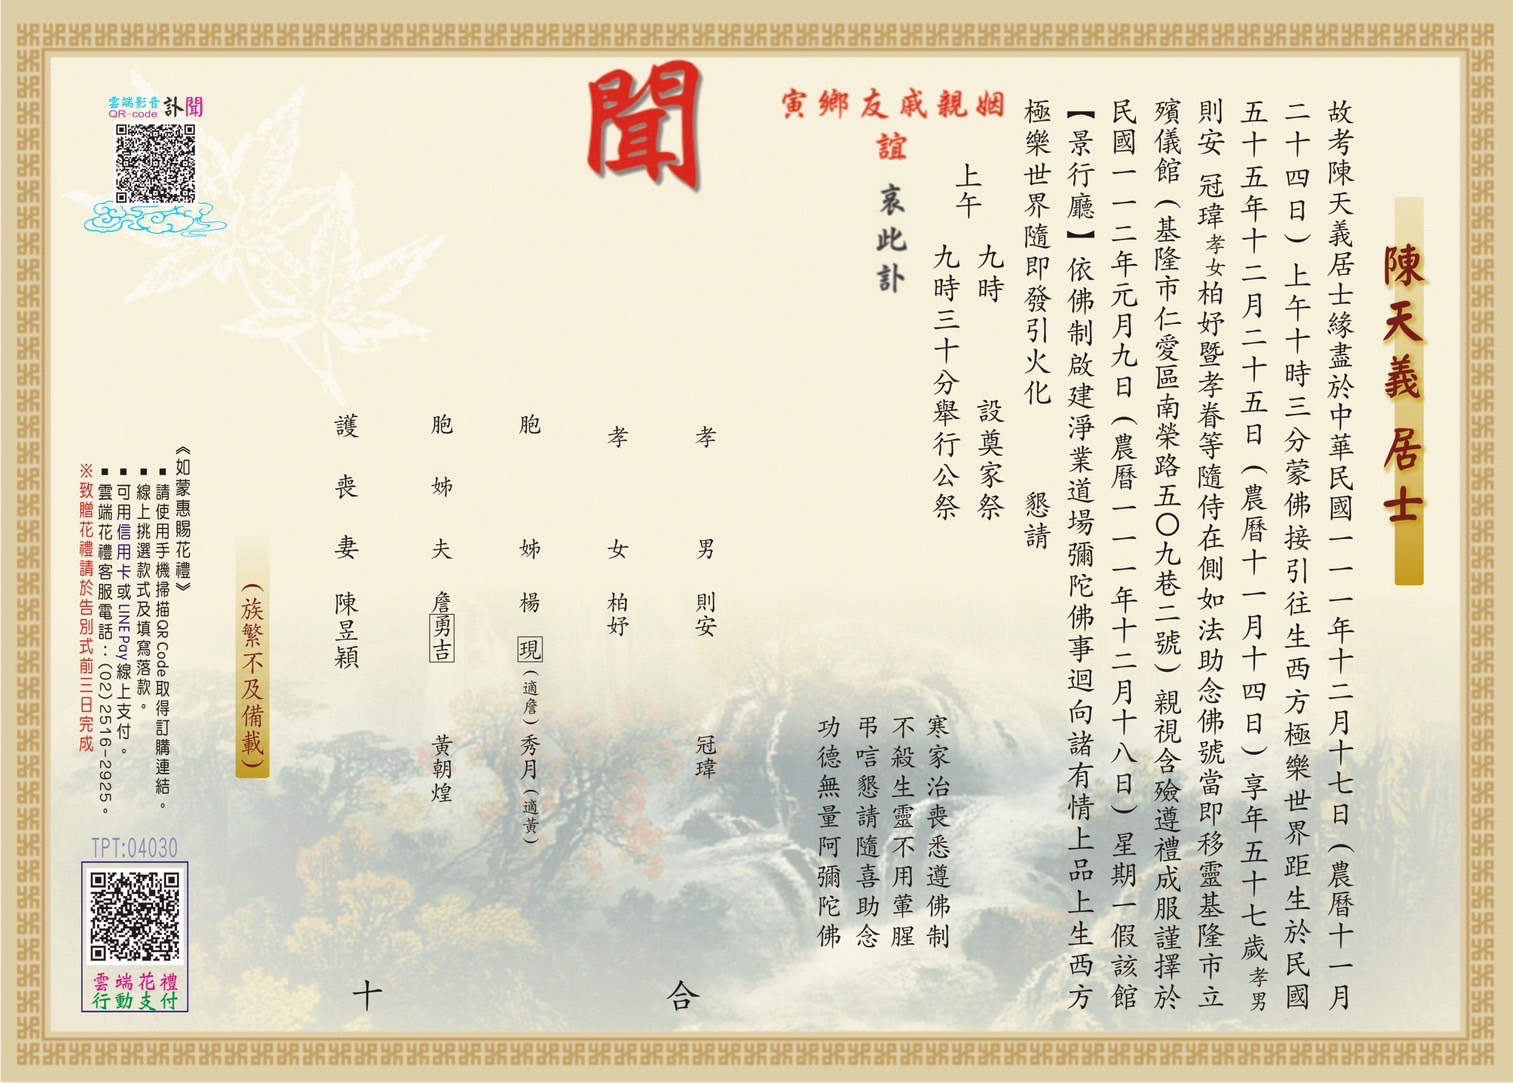 陳天義 居士
故考陳天義居士緣盡於中華民國一一一年十二月十七日(農曆十一月
二十四日)上午十時三分蒙佛接引往生西方極樂世界距生於民國
五十五年十二月二十五日(農曆十一月十四日)享年五十七歲孝男
則安 冠瑋孝女柏妤暨孝眷等隨侍在側如法助念佛號當即移靈基隆市立
殯儀館(基隆市仁愛區南榮路五〇九巷二號)親視含殮遵禮成服謹擇於
民國一一二年元月九日(農曆一一一年十二月十八日)星期一假該館
【景行廳】依佛制啟建淨業道場彌陀佛事迴向諸有情上品上生西方
極樂世界隨即發引火化 懇請
上午 九時 設奠家祭
九時三十分舉行公祭
寅鄉友戚親姻
誼
哀此訃
聞
寒家治喪悉遵佛制
不殺生靈不用葷腥
弔唁懇請隨喜助念
功德無量阿彌陀佛
孝男 則安 冠瑋
孝女 柏妤
胞姊 楊現(適詹)秀月(適黃)
胞姊夫 詹勇吉 黃朝煌
護喪妻 陳昱穎
合
十
(族繁不及備載)
雲端影音 訃聞
QR-code
《如蒙惠賜花禮》
■ 請使用手機掃描QR Code取得訂購連結。
■ 線上挑選款式及填寫落款。
■ 可用信用卡或LINE Pay線上支付。
■ 雲端花禮客服電話:(02)2516-2925。
※致贈花禮請於告別式前三日完成
TPT:04030
雲端花禮
行動支付